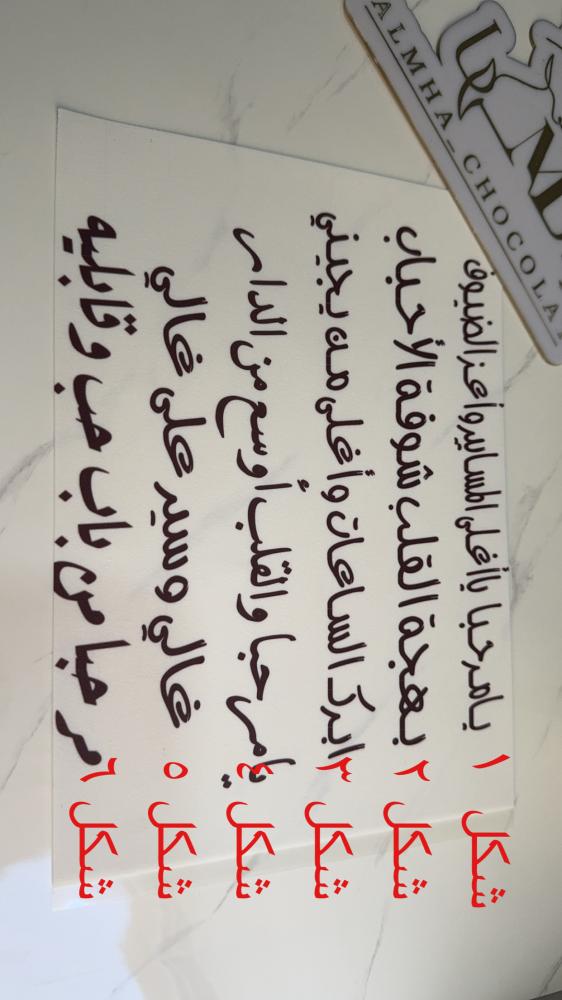 ALMHA_CHOCOLA
شكل ١ يامرحبا ياأغلى المسايير وأعز الضيوف
شكل ٢ بهجة القلب شوفة الأحباب
شكل ٣ ابرك الساعات وأغلى من يجيني
شكل ٤ يامرحبا والقلب أوسع من الدار
شكل ٥ غالي وسير على غالي
شكل ٦ مرحبا من باب حب وقابليه